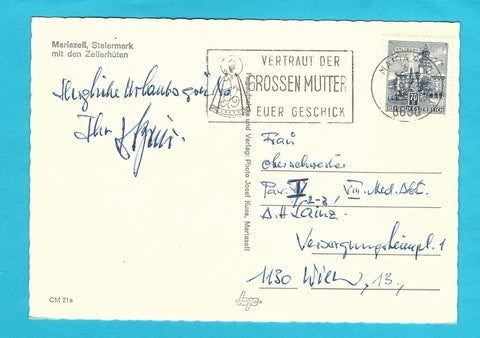 Mariazell, Steiermark
mit den Zellerhüten
Herzliche Urlaubsgrüße
Ihr
VERTRAUT DER
GROSSEN MUTTER
EUER GESCHICK
Verlag: Photo Josef Kuss, Mariazell
Frau
Oberschwester
Pav. VIII. Med. Abt.
A.H. Lainz
Versorgungsheimpl. 1
1130 Wien, 13,
CM 21a